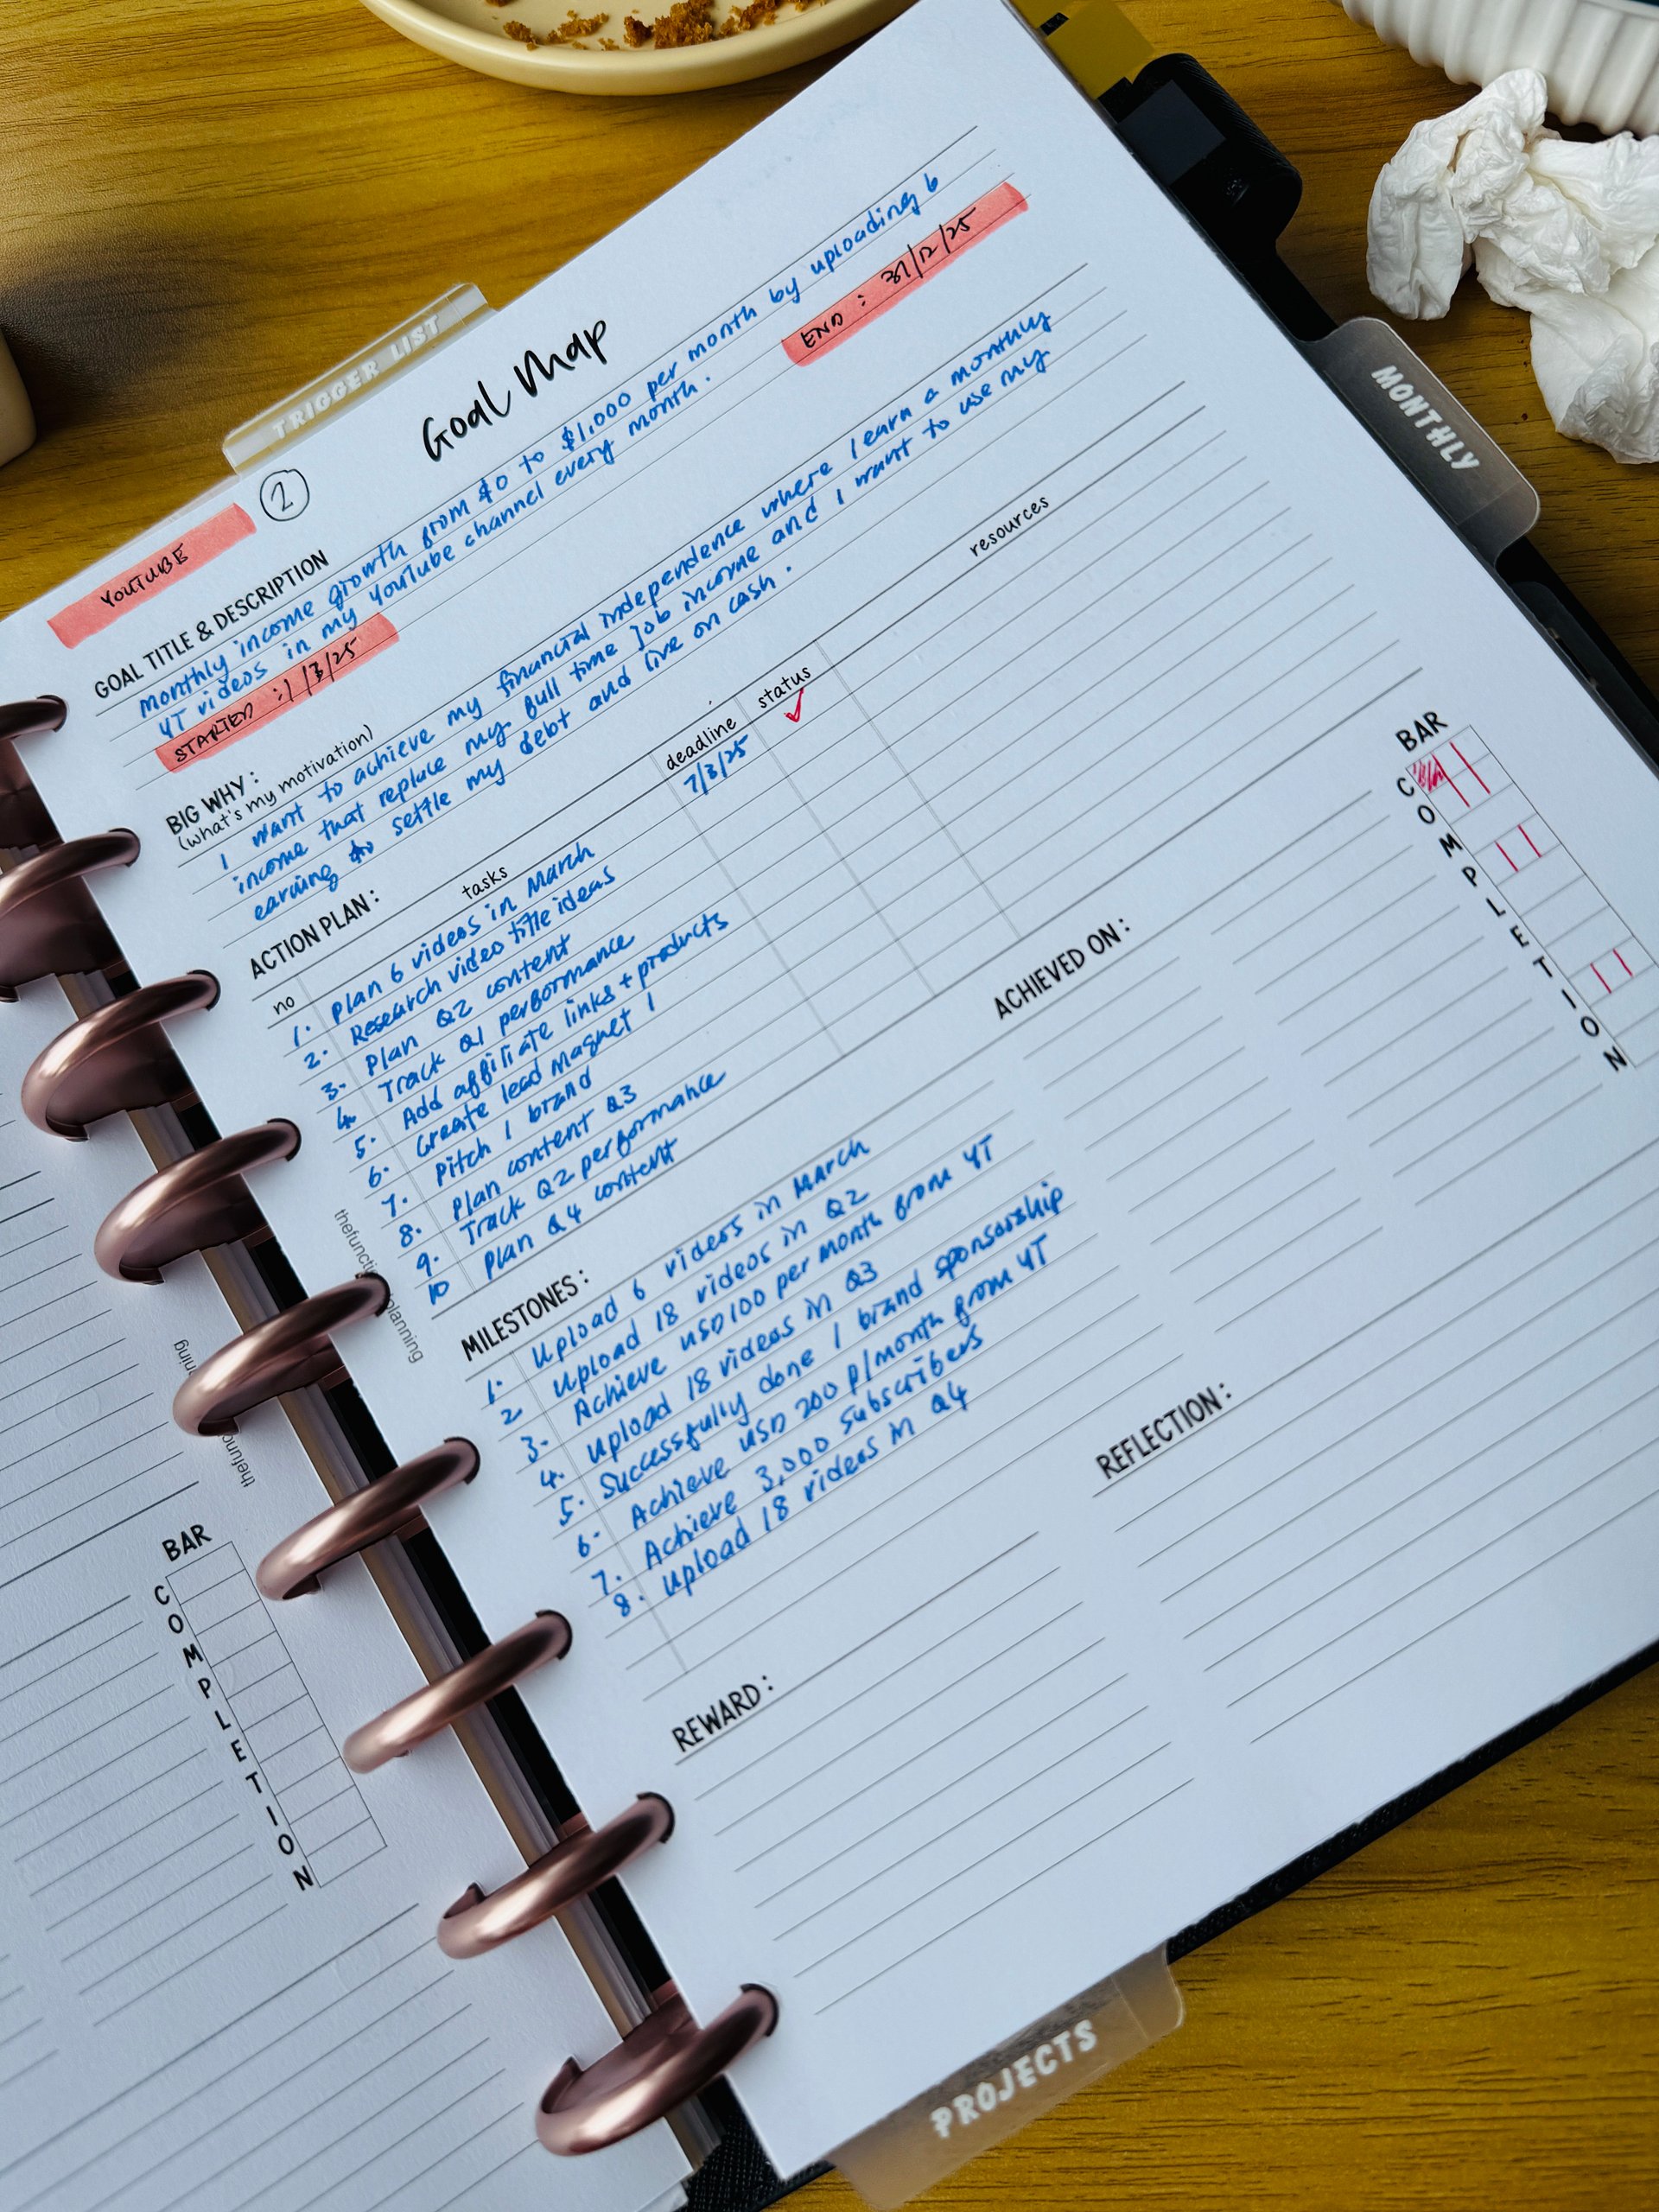 TRIGGER LIST
YOUTUBE
2
Goal Map
GOAL TITLE & DESCRIPTION
Monthly income growth from $0 to $1,000 per month by uploading 6
YT videos in my YouTube channel every month.
STARTED : 1/3/25
END : 31/12/25
BIG WHY :
(what's my motivation)
I want to achieve my financial independence where I earn a monthly
income that replace my full time job income and I want to use my
earning to settle my debt and live on cash.
ACTION PLAN :
no tasks deadline status resources
1. Plan 6 videos in March 7/3/25 ✓
2. Research video title ideas
3. Plan Q2 content
4. Track Q1 performance
5. Add affiliate links + products
6. Create lead magnet 1
7. Pitch 1 brand
8. Plan content Q3
9. Track Q2 performance
10 Plan Q4 content
MILESTONES :
ACHIEVED ON :
1. Upload 6 videos in March
2 Upload 18 videos in Q2
3. Achieve USD100 per month from YT
4. Upload 18 videos in Q3
5. Successfully done 1 brand sponsorship
6. Achieve USD 200 p/month from YT
7. Achieve 3,000 subscribers
8. Upload 18 videos in Q4
BAR
COMPLETION
REWARD :
REFLECTION :
thefuncti planning
ning
thefunc
BAR
COMPLETION
MONTHLY
PROJECTS